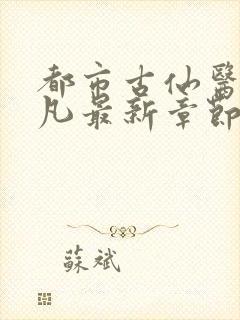 都市古仙醫
凡最新章節
蘇斌